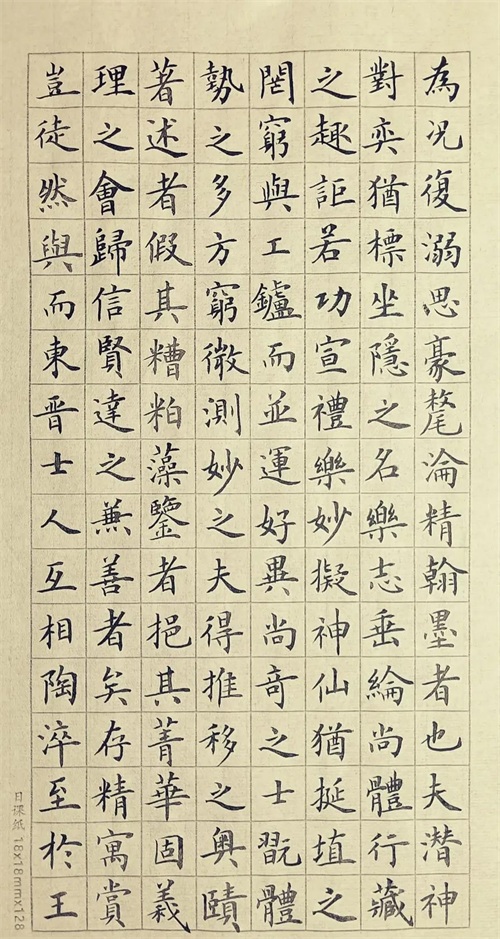 為况復溺思豪氂淪精翰墨者也夫潛神
對奕猶標坐隱之名樂志垂綸尚體行藏
之趣詎若功宣禮樂妙擬神仙猶挻埴之
罔窮與工鑪而並運好異尚奇之士翫體
勢之多方窮微測妙之夫得推移之奥賾
著述者假其糟粕藻鑒者挹其菁華固義
理之會歸信賢達之兼善者矣存精寓賞
豈徒然與而東晋士人互相陶淬至於王
日課紙 18x18mmx128